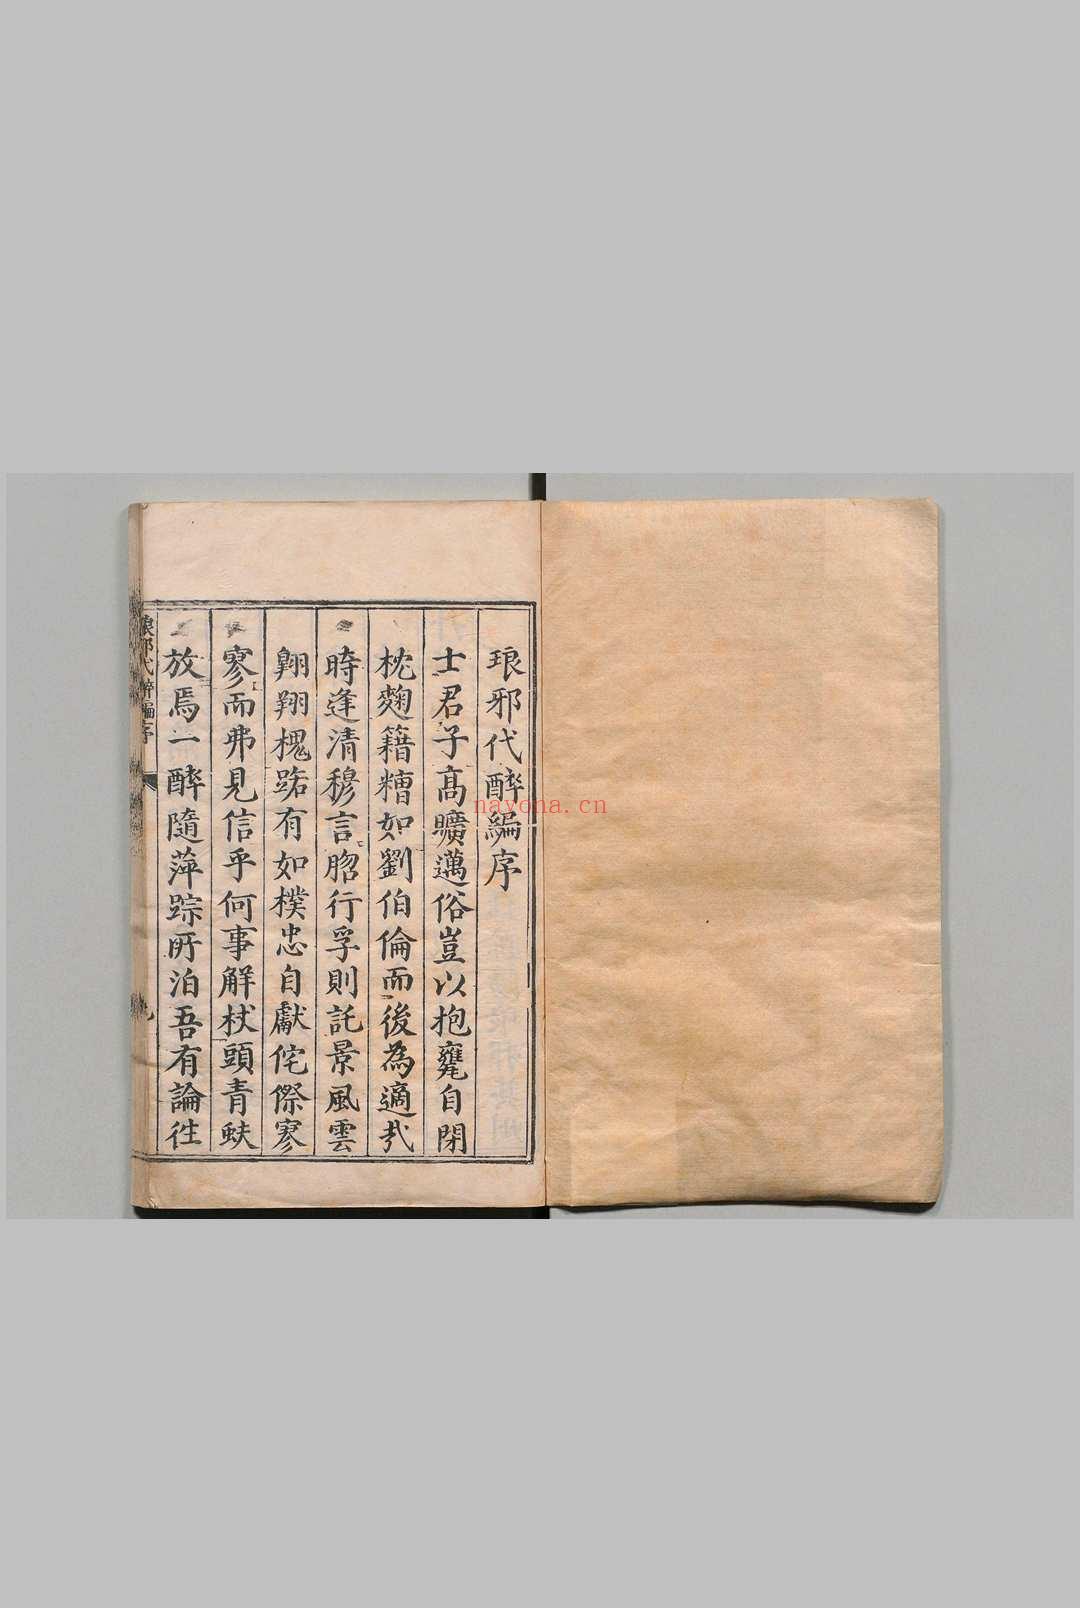 琅邪代醉編序
士君子高曠邁俗豈以抱甕自閉
枕麹籍糟如劉伯倫而後為適我
時逢清穆言脗行孚則託景風雲
翺翔槐路有如樸忠自獻侘傺寥
寥而弗見信乎何事解杖頭青蚨
放焉一醉隨萍踪所泊吾有論往
琅邪代醉編序
nayona.cn